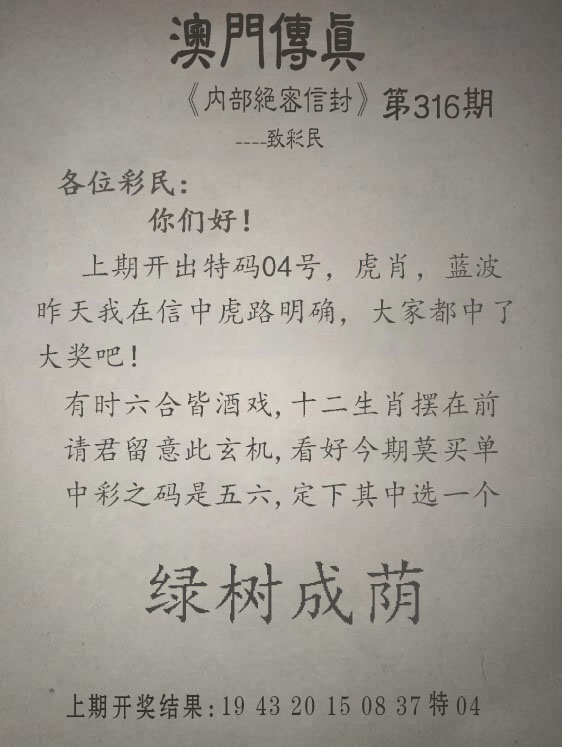 澳門傳眞
《内部絕密信封》第316期
----致彩民
各位彩民：
你们好！
上期开出特码04号，虎肖，蓝波
昨天我在信中虎路明确，大家都中了
大奖吧！
有时六合皆酒戏,十二生肖摆在前
请君留意此玄机,看好今期莫买单
中彩之码是五六,定下其中选一个
绿树成荫
上期开奖结果:19 43 20 15 08 37 特 04